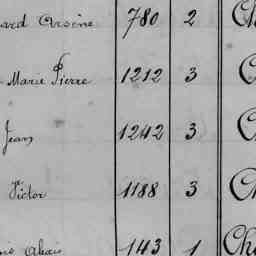 ard Arsène 780 2 Ch
Marie Pierre 1212 3 C
Jean 1242 3 C
Victor 1188 3 Ch
Alexis 143 1 Ch